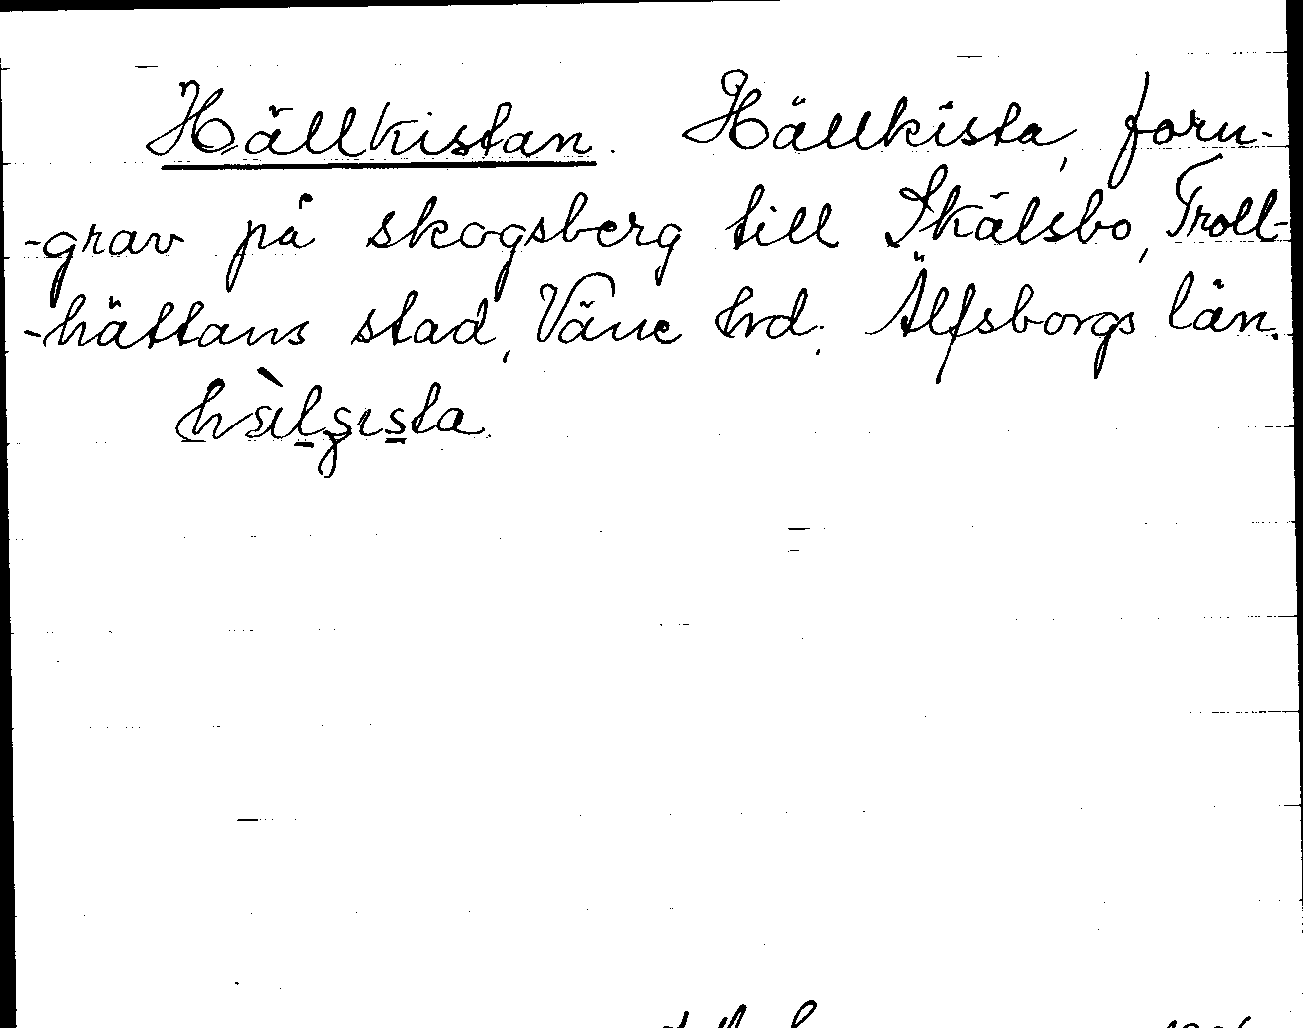 Hällkistan. Hällkista, forn-
-grav på skogsberg till Skälsbo, Troll-
-hättans stad, Väne hd. Älfsborgs län.